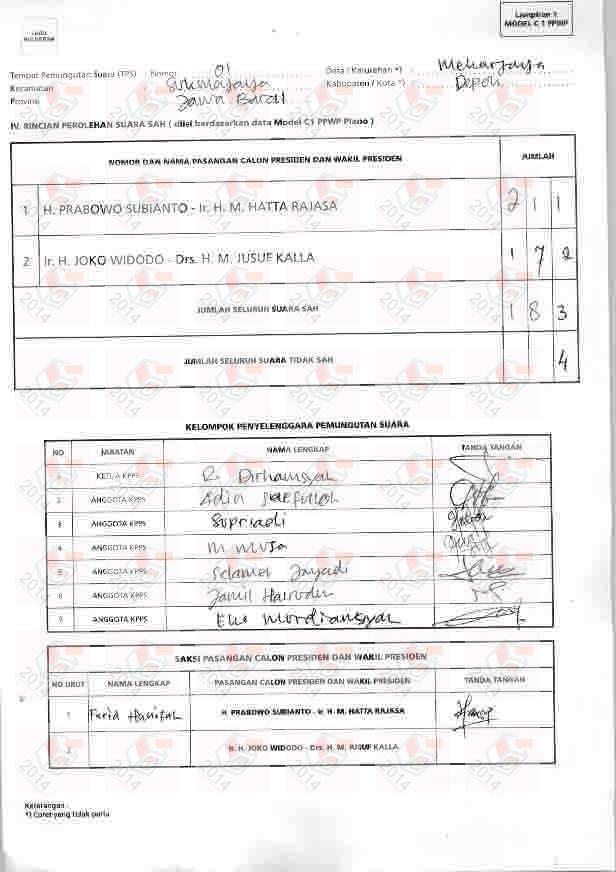 Lampiran 1
MODEL C 1 PPWP
Tempat Pemungutan Suara (TPS) : Nomor 01 Desa / Kelurahan *) : Mekarjaya
Kecamatan : Sukmajaya Kabupaten / Kota *) : Depok
Provinsi : Jawa Barat
IV. RINCIAN PEROLEHAN SUARA SAH ( diisi berdasarkan data Model C1 PPWP Plano )
NOMOR DAN NAMA PASANGAN CALON PRESIDEN DAN WAKIL PRESIDEN JUMLAH
1 H. PRABOWO SUBIANTO - Ir. H. M. HATTA RAJASA 2 1 1
2 Ir. H. JOKO WIDODO - Drs. H. M. JUSUF KALLA 1 7 2
JUMLAH SELURUH SUARA SAH 1 8 3
JUMLAH SELURUH SUARA TIDAK SAH 4
KELOMPOK PENYELENGGARA PEMUNGUTAN SUARA
NO JABATAN NAMA LENGKAP TANDA TANGAN
1 KETUA KPPS R. Dirhamsyah
2 ANGGOTA KPPS Adin Saefulloh
3 ANGGOTA KPPS Supriadi
4 ANGGOTA KPPS M Musa
5 ANGGOTA KPPS Selamet Jayadi
6 ANGGOTA KPPS Jamil Hairudin
7 ANGGOTA KPPS Eko Mordiansyah
SAKSI PASANGAN CALON PRESIDEN DAN WAKIL PRESIDEN
NO URUT NAMA LENGKAP PASANGAN CALON PRESIDEN DAN WAKIL PRESIDEN TANDA TANGAN
1 Farid H. PRABOWO SUBIANTO - Ir. H. M. HATTA RAJASA
2 Ir. H. JOKO WIDODO - Drs. H. M. JUSUF KALLA
Keterangan :
*) Coret yang tidak perlu